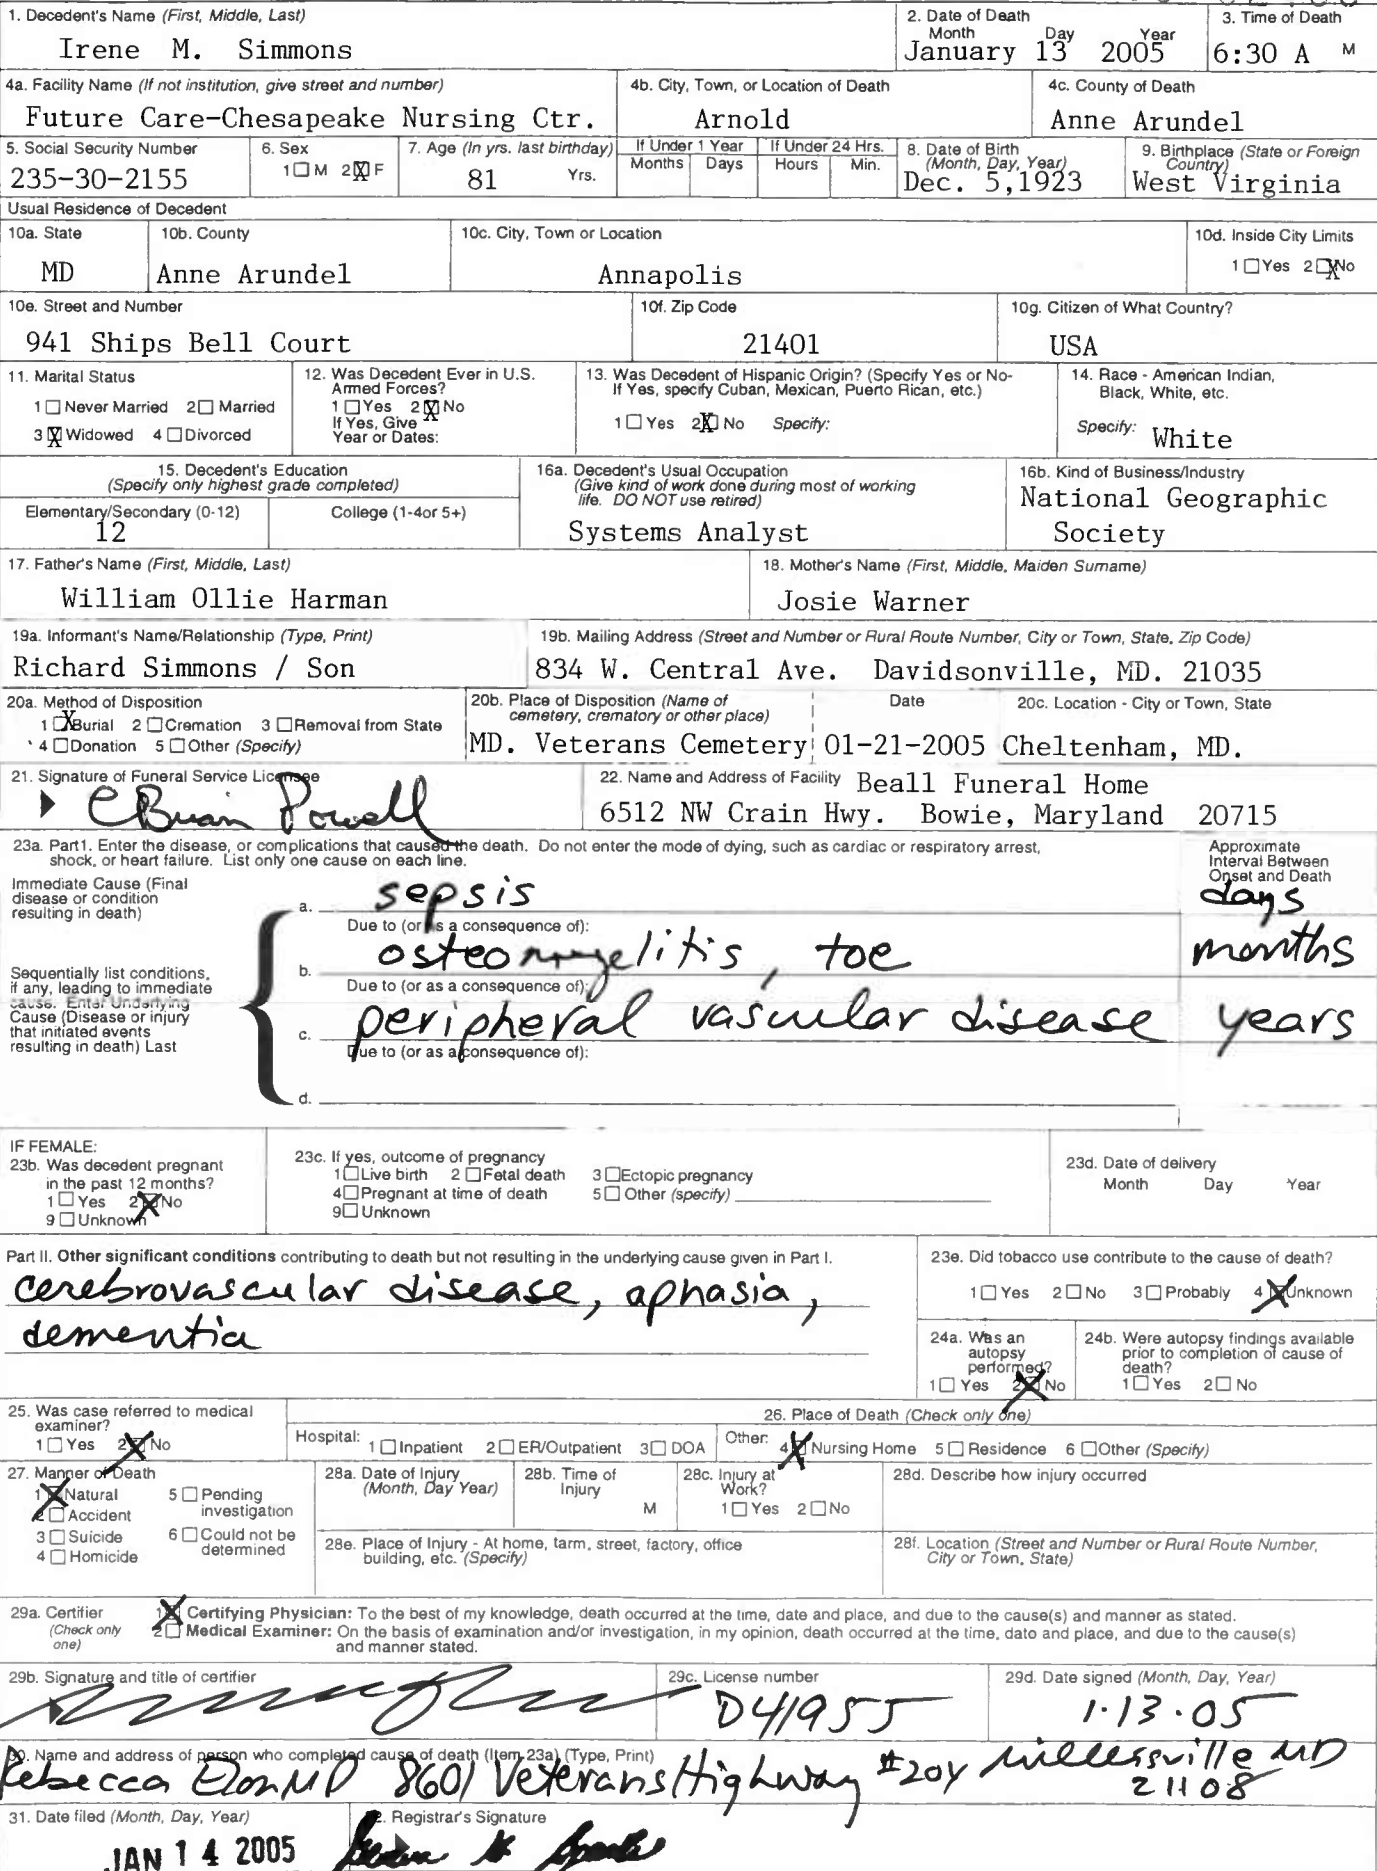 1. Decedent's Name (First, Middle, Last)
Irene M. Simmons
2. Date of Death
Month Day Year
January 13 2005
3. Time of Death
6:30 A M
4a. Facility Name (If not institution, give street and number)
Future Care-Chesapeake Nursing Ctr.
4b. City, Town, or Location of Death
Arnold
4c. County of Death
Anne Arundel
5. Social Security Number
235-30-2155
6. Sex
1☐M 2☒F
7. Age (In yrs. last birthday)
81 Yrs.
If Under 1 Year
Months Days
If Under 24 Hrs.
Hours Min.
8. Date of Birth
(Month, Day, Year)
Dec. 5,1923
9. Birthplace (State or Foreign
Country)
West Virginia
Usual Residence of Decedent
10a. State
MD
10b. County
Anne Arundel
10c. City, Town or Location
Annapolis
10d. Inside City Limits
1☐Yes 2☒No
10e. Street and Number
941 Ships Bell Court
10f. Zip Code
21401
10g. Citizen of What Country?
USA
11. Marital Status
1☐Never Married 2☐Married
3☒Widowed 4☐Divorced
12. Was Decedent Ever in U.S.
Armed Forces?
1☐Yes 2☒No
If Yes, Give
Year or Dates:
13. Was Decedent of Hispanic Origin? (Specify Yes or No-
If Yes, specify Cuban, Mexican, Puerto Rican, etc.)
1☐Yes 2☒No Specify:
14. Race - American Indian,
Black, White, etc.
Specify: White
15. Decedent's Education
(Specify only highest grade completed)
Elementary/Secondary (0-12)
12
College (1-4or 5+)
16a. Decedent's Usual Occupation
(Give kind of work done during most of working
life. DO NOT use retired)
Systems Analyst
16b. Kind of Business/Industry
National Geographic
Society
17. Father's Name (First, Middle, Last)
William Ollie Harman
18. Mother's Name (First, Middle, Maiden Surname)
Josie Warner
19a. Informant's Name/Relationship (Type, Print)
Richard Simmons / Son
19b. Mailing Address (Street and Number or Rural Route Number, City or Town, State, Zip Code)
834 W. Central Ave. Davidsonville, MD. 21035
20a. Method of Disposition
1☒Burial 2☐Cremation 3☐Removal from State
4☐Donation 5☐Other (Specify)
20b. Place of Disposition (Name of
cemetery, crematory or other place)
MD. Veterans Cemetery
Date
01-21-2005
20c. Location - City or Town, State
Cheltenham, MD.
21. Signature of Funeral Service Licensee
Brian Powell
22. Name and Address of Facility Beall Funeral Home
6512 NW Crain Hwy. Bowie, Maryland 20715
23a. Part1. Enter the disease, or complications that caused the death. Do not enter the mode of dying, such as cardiac or respiratory arrest,
shock, or heart failure. List only one cause on each line.
Approximate
Interval Between
Onset and Death
Immediate Cause (Final
disease or condition
resulting in death)
a. sepsis days
Due to (or as a consequence of):
b. osteomyelitis, toe months
Due to (or as a consequence of):
Sequentially list conditions,
if any, leading to immediate
cause. Enter Underlying
Cause (Disease or injury
that initiated events
resulting in death) Last
c. peripheral vascular disease years
Due to (or as a consequence of):
d.
IF FEMALE:
23b. Was decedent pregnant
in the past 12 months?
1☐Yes 2☒No
9☐Unknown
23c. If yes, outcome of pregnancy
1☐Live birth 2☐Fetal death 3☐Ectopic pregnancy
4☐Pregnant at time of death 5☐Other (specify)
9☐Unknown
23d. Date of delivery
Month Day Year
Part II. Other significant conditions contributing to death but not resulting in the underlying cause given in Part I.
cerebrovascular disease, aphasia,
dementia
23e. Did tobacco use contribute to the cause of death?
1☐Yes 2☐No 3☐Probably 4☒Unknown
24a. Was an
autopsy
performed?
1☐Yes 2☒No
24b. Were autopsy findings available
prior to completion of cause of
death?
1☐Yes 2☐No
25. Was case referred to medical
examiner?
1☐Yes 2☒No
26. Place of Death (Check only one)
Hospital: 1☐Inpatient 2☐ER/Outpatient 3☐DOA
Other: 4☒Nursing Home 5☐Residence 6☐Other (Specify)
27. Manner of Death
1☒Natural 5☐Pending
investigation
2☐Accident
3☐Suicide 6☐Could not be
determined
4☐Homicide
28a. Date of Injury
(Month, Day Year)
28b. Time of
Injury
M
28c. Injury at
Work?
1☐Yes 2☐No
28d. Describe how injury occurred
28e. Place of Injury - At home, farm, street, factory, office
building, etc. (Specify)
28f. Location (Street and Number or Rural Route Number,
City or Town, State)
29a. Certifier
(Check only
one)
1☒Certifying Physician: To the best of my knowledge, death occurred at the time, date and place, and due to the cause(s) and manner as stated.
2☐Medical Examiner: On the basis of examination and/or investigation, in my opinion, death occurred at the time, date and place, and due to the cause(s)
and manner stated.
29b. Signature and title of certifier
29c. License number
D41955
29d. Date signed (Month, Day, Year)
1-13-05
30. Name and address of person who completed cause of death (Item 23a) (Type, Print)
Rebecca Elon MD 8601 Veterans Highway #204 Millersville MD
21108
31. Date filed (Month, Day, Year)
JAN 14 2005
32. Registrar's Signature